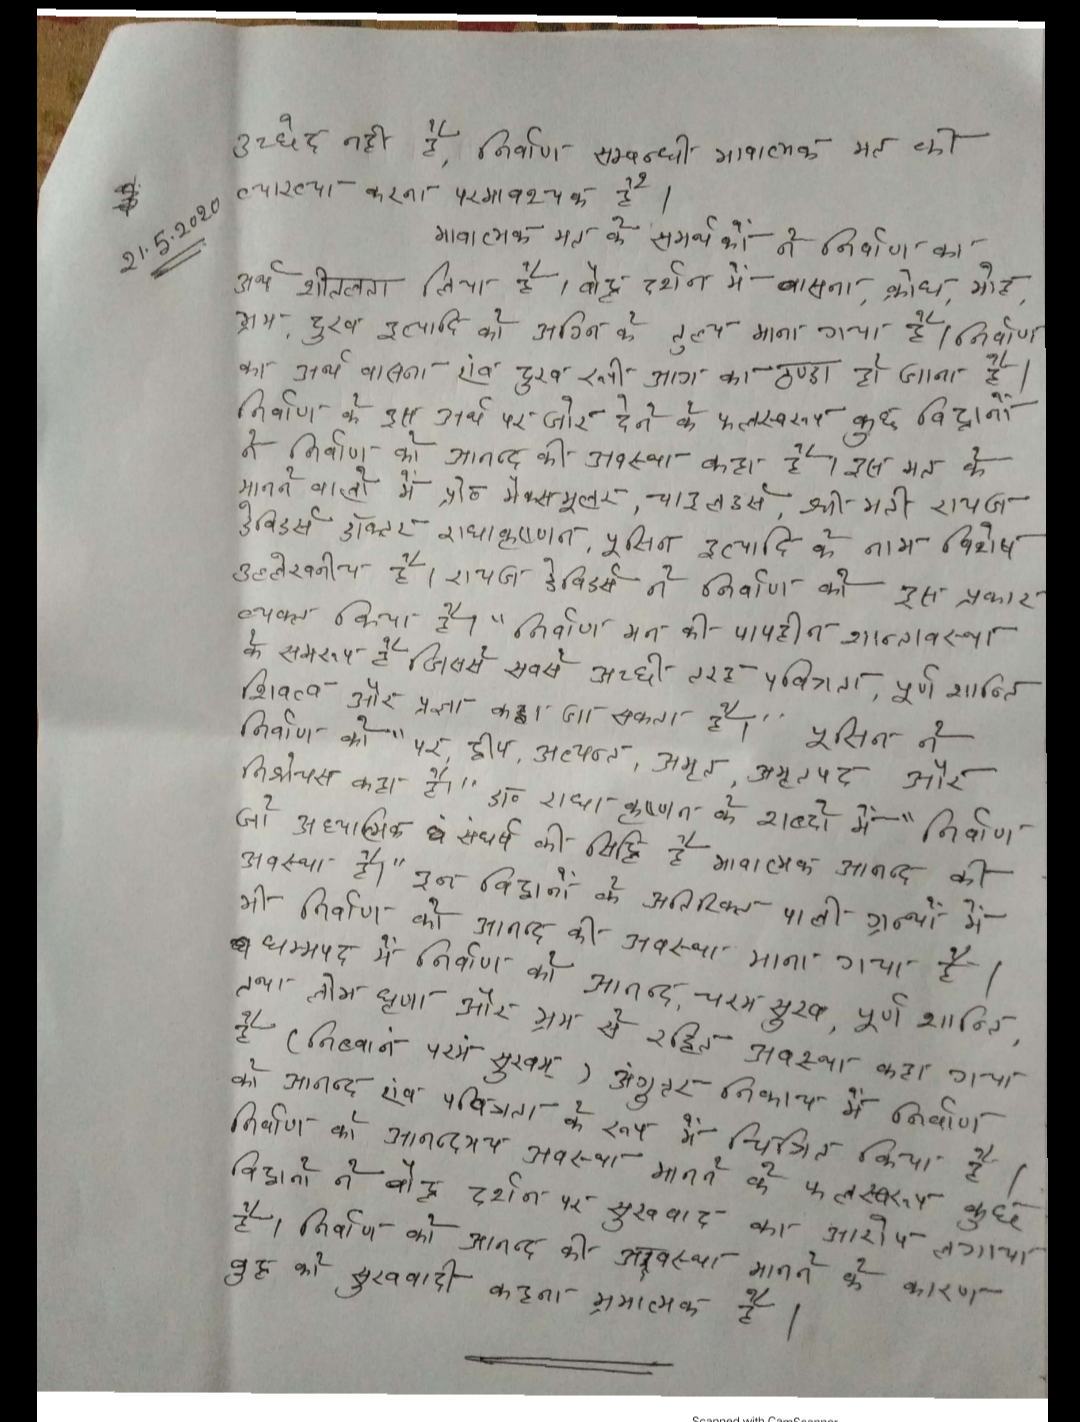 उच्छेद नही है, निर्वाण सम्बन्धी भावात्मक मत की
व्याख्या करना परमावश्यक है।
21.5.2020
भावात्मक मत के समर्थकों ने निर्वाण का
अर्थ शीतलता लिया है। बौद्ध दर्शन में वासना, क्रोध, मोह,
भ्रम, दुख इत्यादि को अग्नि के तुल्य माना गया है। निर्वाण
का अर्थ वासना एंव दुख रूपी आग का ठण्डा हो जाना है।
निर्वाण के इस अर्थ पर जोर देने के फलस्वरूप कुछ विद्वानों
ने निर्वाण को आनन्द की अवस्था कहा है। इस मत के
मानने वालो में प्रो० मैक्समूलर, चाइलडर्स, श्री मती रायज
डेविडर्स डॉक्टर राधाकृष्णन, पूसिन इत्यादि के नाम विशेष
उल्लेखनीय है। रायज डेविडर्स ने निर्वाण को इस प्रकार
व्यक्त किया है। "निर्वाण मन की पापहीन शान्तावस्था
के समरूप है जिससे सबसे अच्छी तरह पवित्रता, पूर्ण शान्ति
शिवत्व और प्रज्ञा कहा जा सकता है।" पूसिन ने
निर्वाण को "पर, द्वीप, अत्यन्त, अमृत, अमृतपद और
निश्रेयस कहा है।" डा० राधा कृष्णन के शब्दो में "निर्वाण
जो अध्यात्मिक संघर्ष की सिद्धि है भावात्मक आनन्द की
अवस्था है।" इन विद्वानों के अतिरिक्त पाली ग्रन्थों में
भी निर्वाण को आनन्द की अवस्था माना गया है।
धम्मपद में निर्वाण को आनन्द, चरम सुख, पूर्ण शान्ति,
तथा लोभ घृणा और भ्रम से रहित अवस्था कहा गया
है (निब्वानं परमं सुखम्) अंगुतर निकाय में निर्वाण
को आनन्द एंव पवित्रता के रूप में चित्रित किया है।
निर्वाण को आनन्दमय अवस्था मानने के फलस्वरूप कुछ
विद्वानो ने बौद्ध दर्शन पर सुखवाद का आरोप लगाया
है। निर्वाण को आनन्द की अवस्था मानने के कारण
बुद्ध को सुखवादी कहना भ्रमात्मक है।